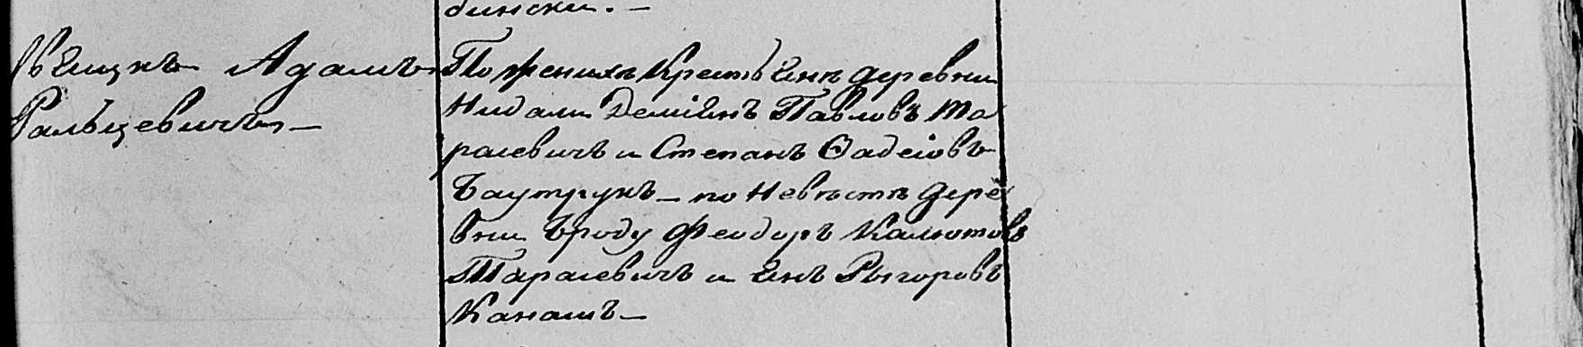 бински. —
Адамъ
Ральцевичъ —
По женихѣ Крестьѣнъ деревни
Нидали Демiѣнъ Павловъ Та
расевичъ и Степанъ Ѳадеiовъ
Баутрукъ — по Невѣстѣ дере
вни Броду Феодоръ Калютовъ
Тарасевичъ и Ѣнъ Рыгоровъ
Канашъ —